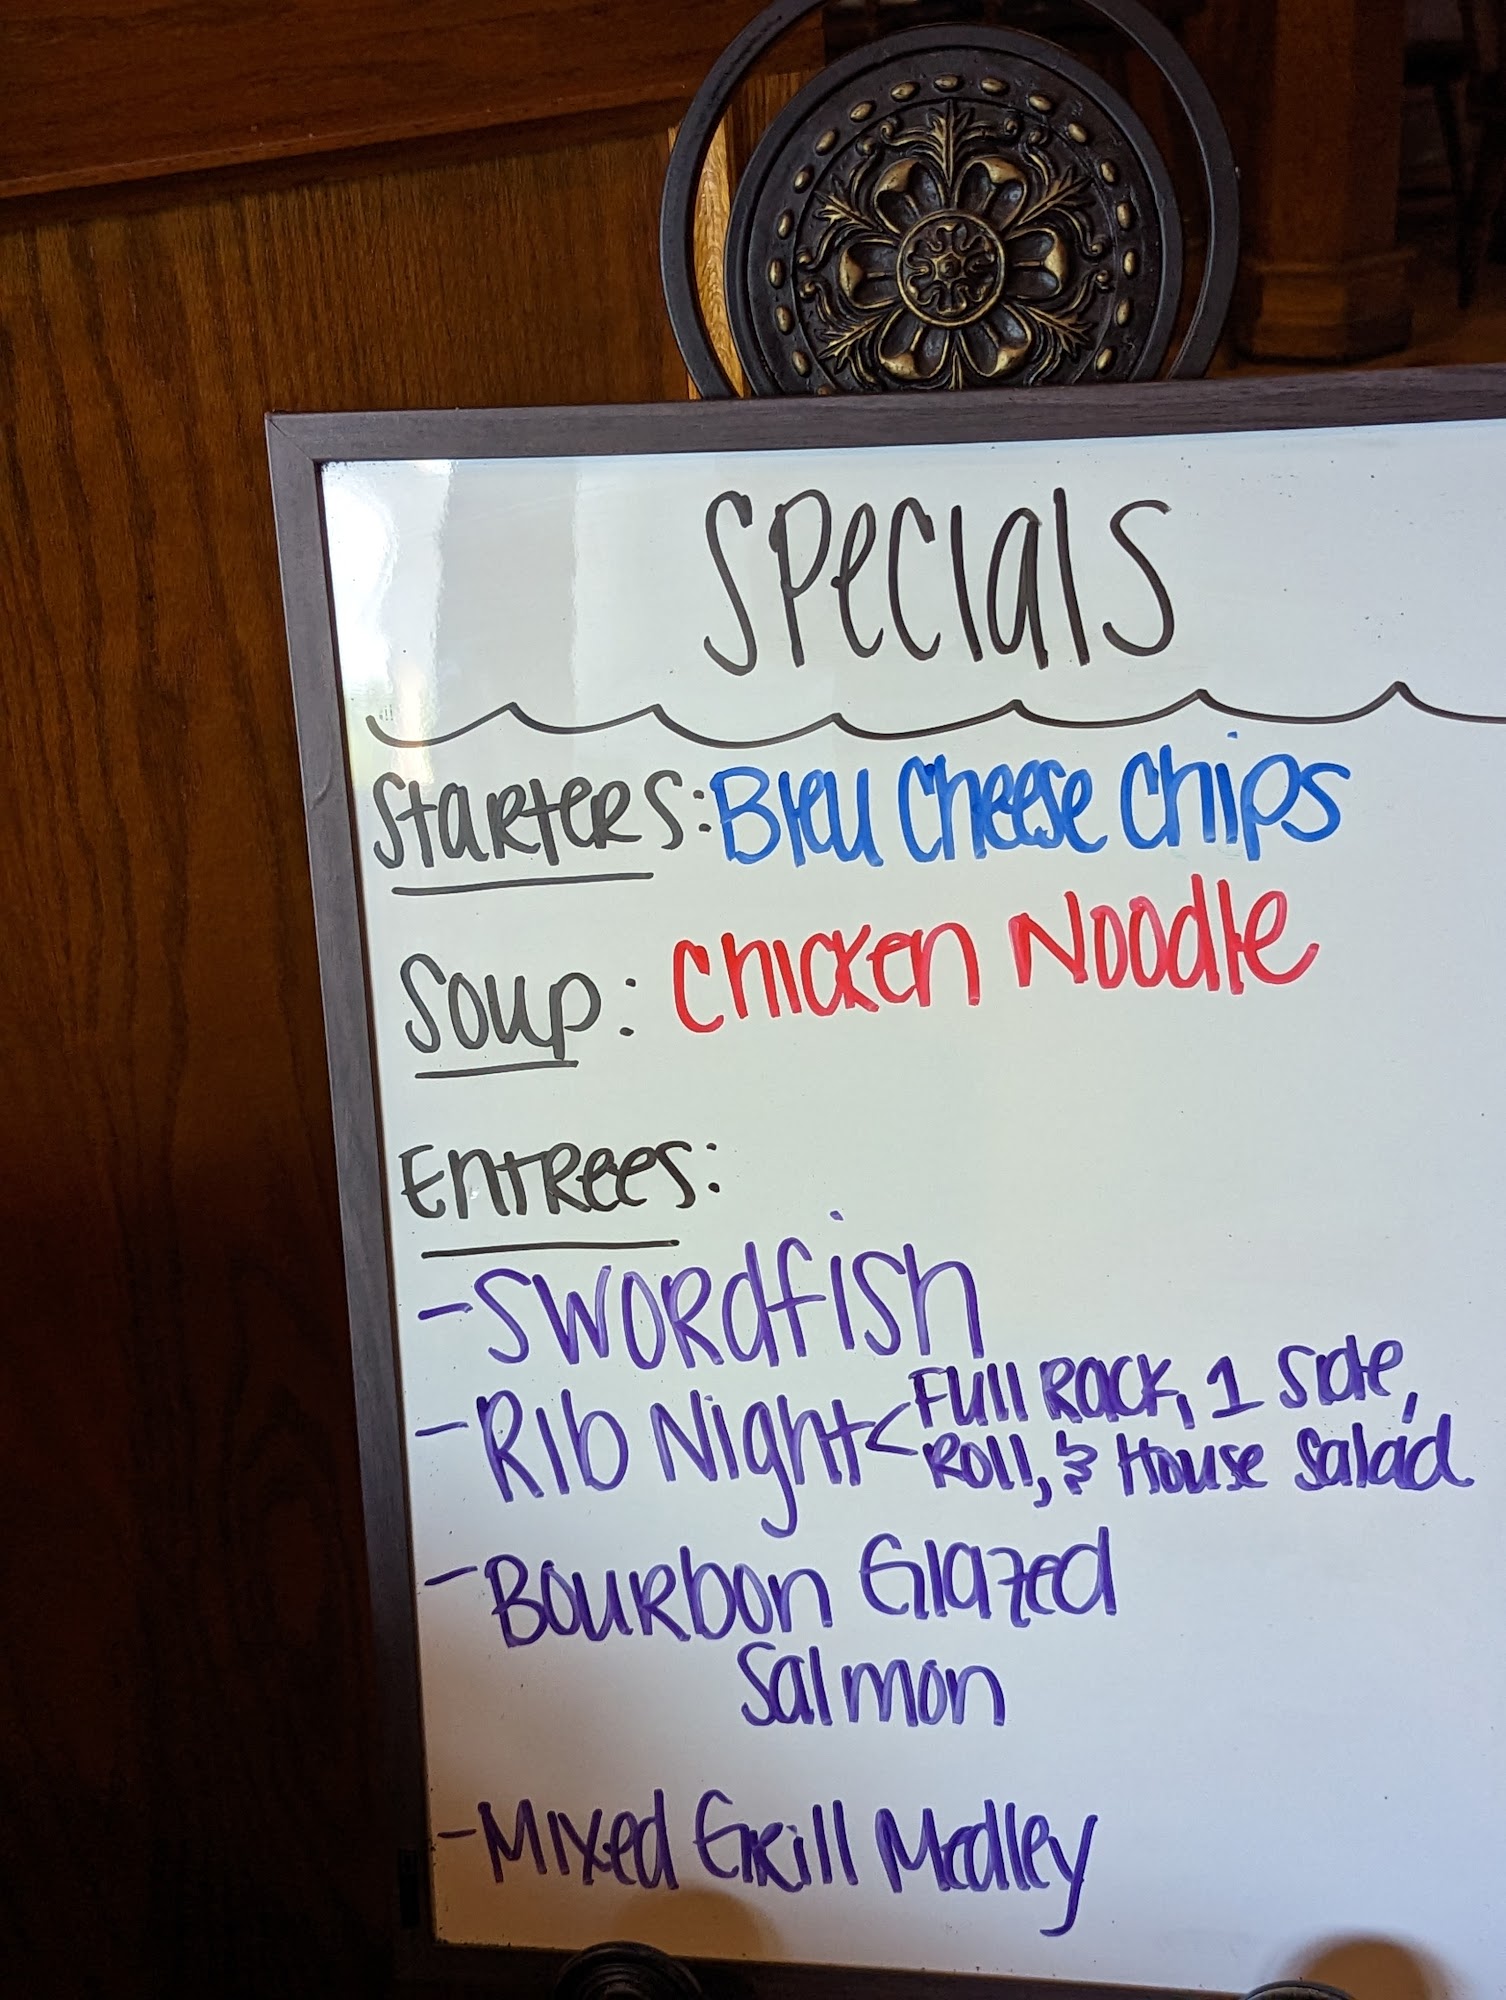 Specials
Starters: Bleu Cheese Chips
Soup: Chicken Noodle
Entrees:
- Swordfish
- Rib Night < Full Rack, 1 Side,
Roll, & House Salad
- Bourbon Glazed
Salmon
- Mixed Grill Medley